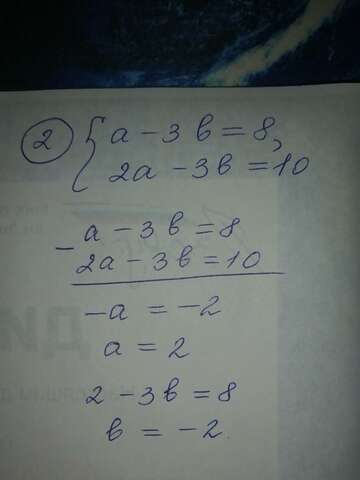 2 { a - 3в = 8,
2a - 3в = 10
- a - 3в = 8
2a - 3в = 10
-a = -2
a = 2
2 - 3в = 8
в = -2.